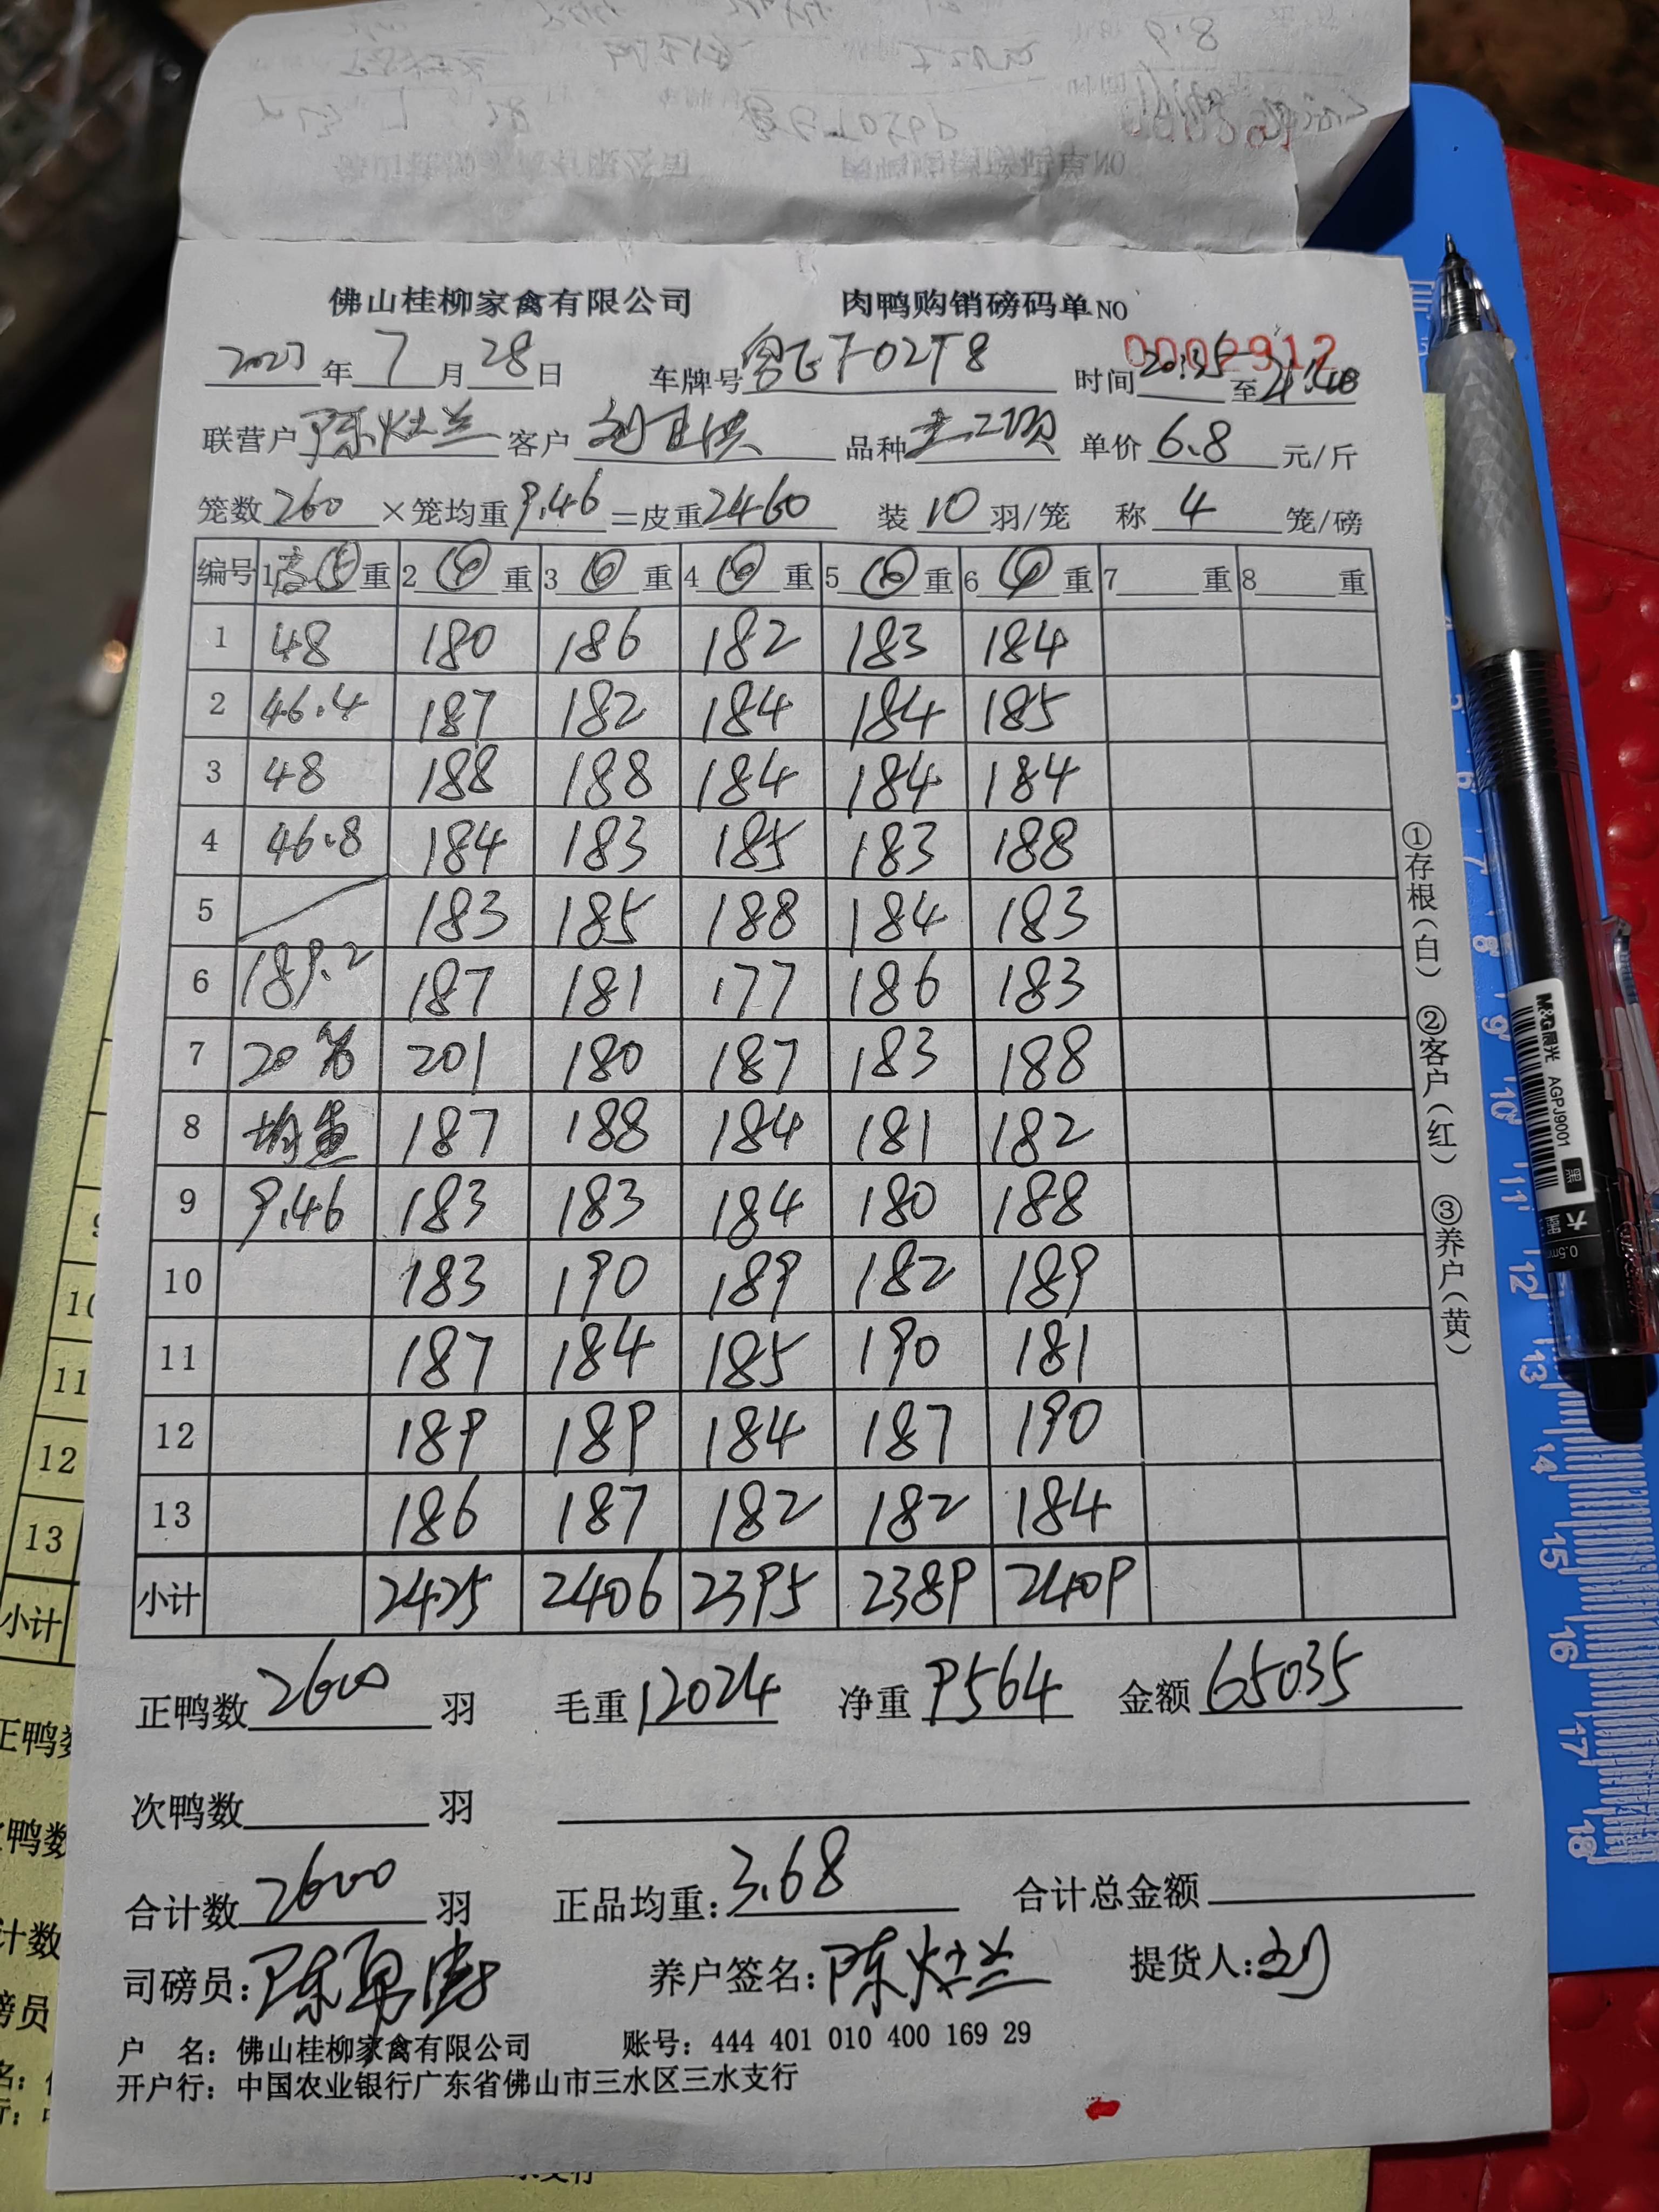 佛山桂柳家禽有限公司 肉鸭购销磅码单 NO 0002912
2023年 7 月 28 日 车牌号 F02T8 时间 20:35 至 21:40
联营户 陈灶兰 客户 刘 品种 单价 6.8 元/斤
笼数 260 ×笼均重 9.46 =皮重 2460 装 10 羽/笼 称 4 笼/磅
编号 1 重 2 ④ 重 3 重 4 重 5 重 6 ④ 重 7 重 8 重
1 48 180 186 182 183 184
2 46.4 187 182 184 184 185
3 48 188 188 184 184 184
4 46.8 184 183 185 183 188
5 183 185 188 184 183
6 189.2 187 181 177 186 183
7 20笼 201 180 187 183 188
8 均重 187 188 184 181 182
9 9.46 183 183 184 180 188
10 183 190 189 182 189
11 187 184 185 190 181
12 189 189 184 187 190
13 186 187 182 182 184
小计 2425 2406 2395 2389 2409
正鸭数 2600 羽 毛重 12024 净重 9564 金额 65035
次鸭数 羽
合计数 2600 羽 正品均重: 3.68 合计总金额
司磅员: 陈 养户签名: 陈灶兰 提货人: 刘
户 名: 佛山桂柳家禽有限公司 账号: 444 401 010 400 169 29
开户行: 中国农业银行广东省佛山市三水区三水支行
①存根(白) ②客户(红) ③养户(黄)
M&G晨光 AGPJ9001 黑
0.5mm
10
11
12
13
小计
7 8 9 10 11 12 13 14 15 16 17 18